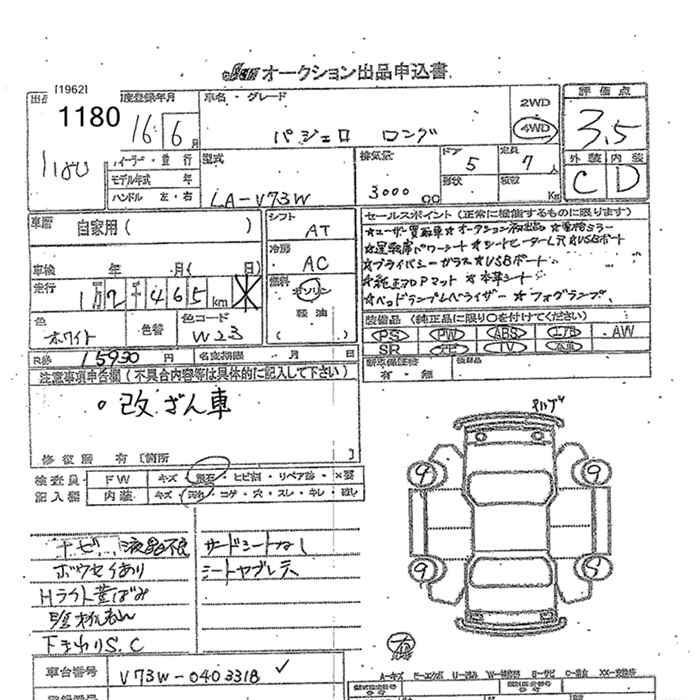 オークション出品申込書
[1962]
1180
1180
度登録年月
16 6 月
車名・グレード
パジェロ ロング
2WD
4WD
評価点
3.5
外装 内装
C D
ディーラー・並行
モデル年式 年
ハンドル 左・右
型式
LA-V73W
排気量
3000 cc
ドア 5
形状
定員 7 人
積載 Kg
車歴 自家用 ( )
シフト AT
冷房 AC
車検 年 月( 日)
走行 1万2千465 km
燃料 ガソリン
軽油
( )
色 ホワイト
色替
色コード W23
セールスポイント (正常に機能するものに限ります)
★ユーザー買取車★オークション初出品★電格ミラー
★運転席パワーシート★シートヒーター★USBポート
★プライバシーガラス★USBポート
★純正フロアマット ★本革シート
★ヘッドランプレベライザー ★フォグランプ
装備品 (純正品に限り〇を付けてください)
PS PW ABS エアB AW
SR ナビ TV 本革
新車保証書 有・無
R券 15930 円
名変期限 月 日
注意事項申告欄 (不具合内容等は具体的に記入して下さい)
○改ざん車
修復歴 有 [箇所 ]
検査員 FW キズ・飛石・ヒビ割・リペア跡・×要
記入欄 内装 キズ・汚れ・コゲ・穴・スレ・キレ・剥し
ナビ、液晶不良 サードシートなし
ボウセイあり シートヤブレ大
Hライト黄ばみ
下まわりS.C
車台番号 V73W-0403318 ✓
9 9
9 5
A-キズ P-エコペ U-凹み W-補修跡 S-サビ C-腐食 XX-交換済